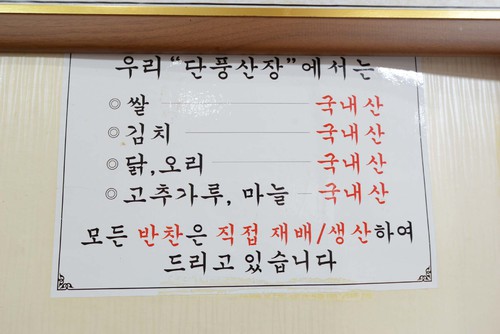 우리 “단풍산장”에서는
◎ 쌀 국내산
◎ 김치 국내산
◎ 닭,오리 국내산
◎ 고추가루, 마늘 국내산
모든 반찬은 직접 재배/생산하여
드리고 있습니다